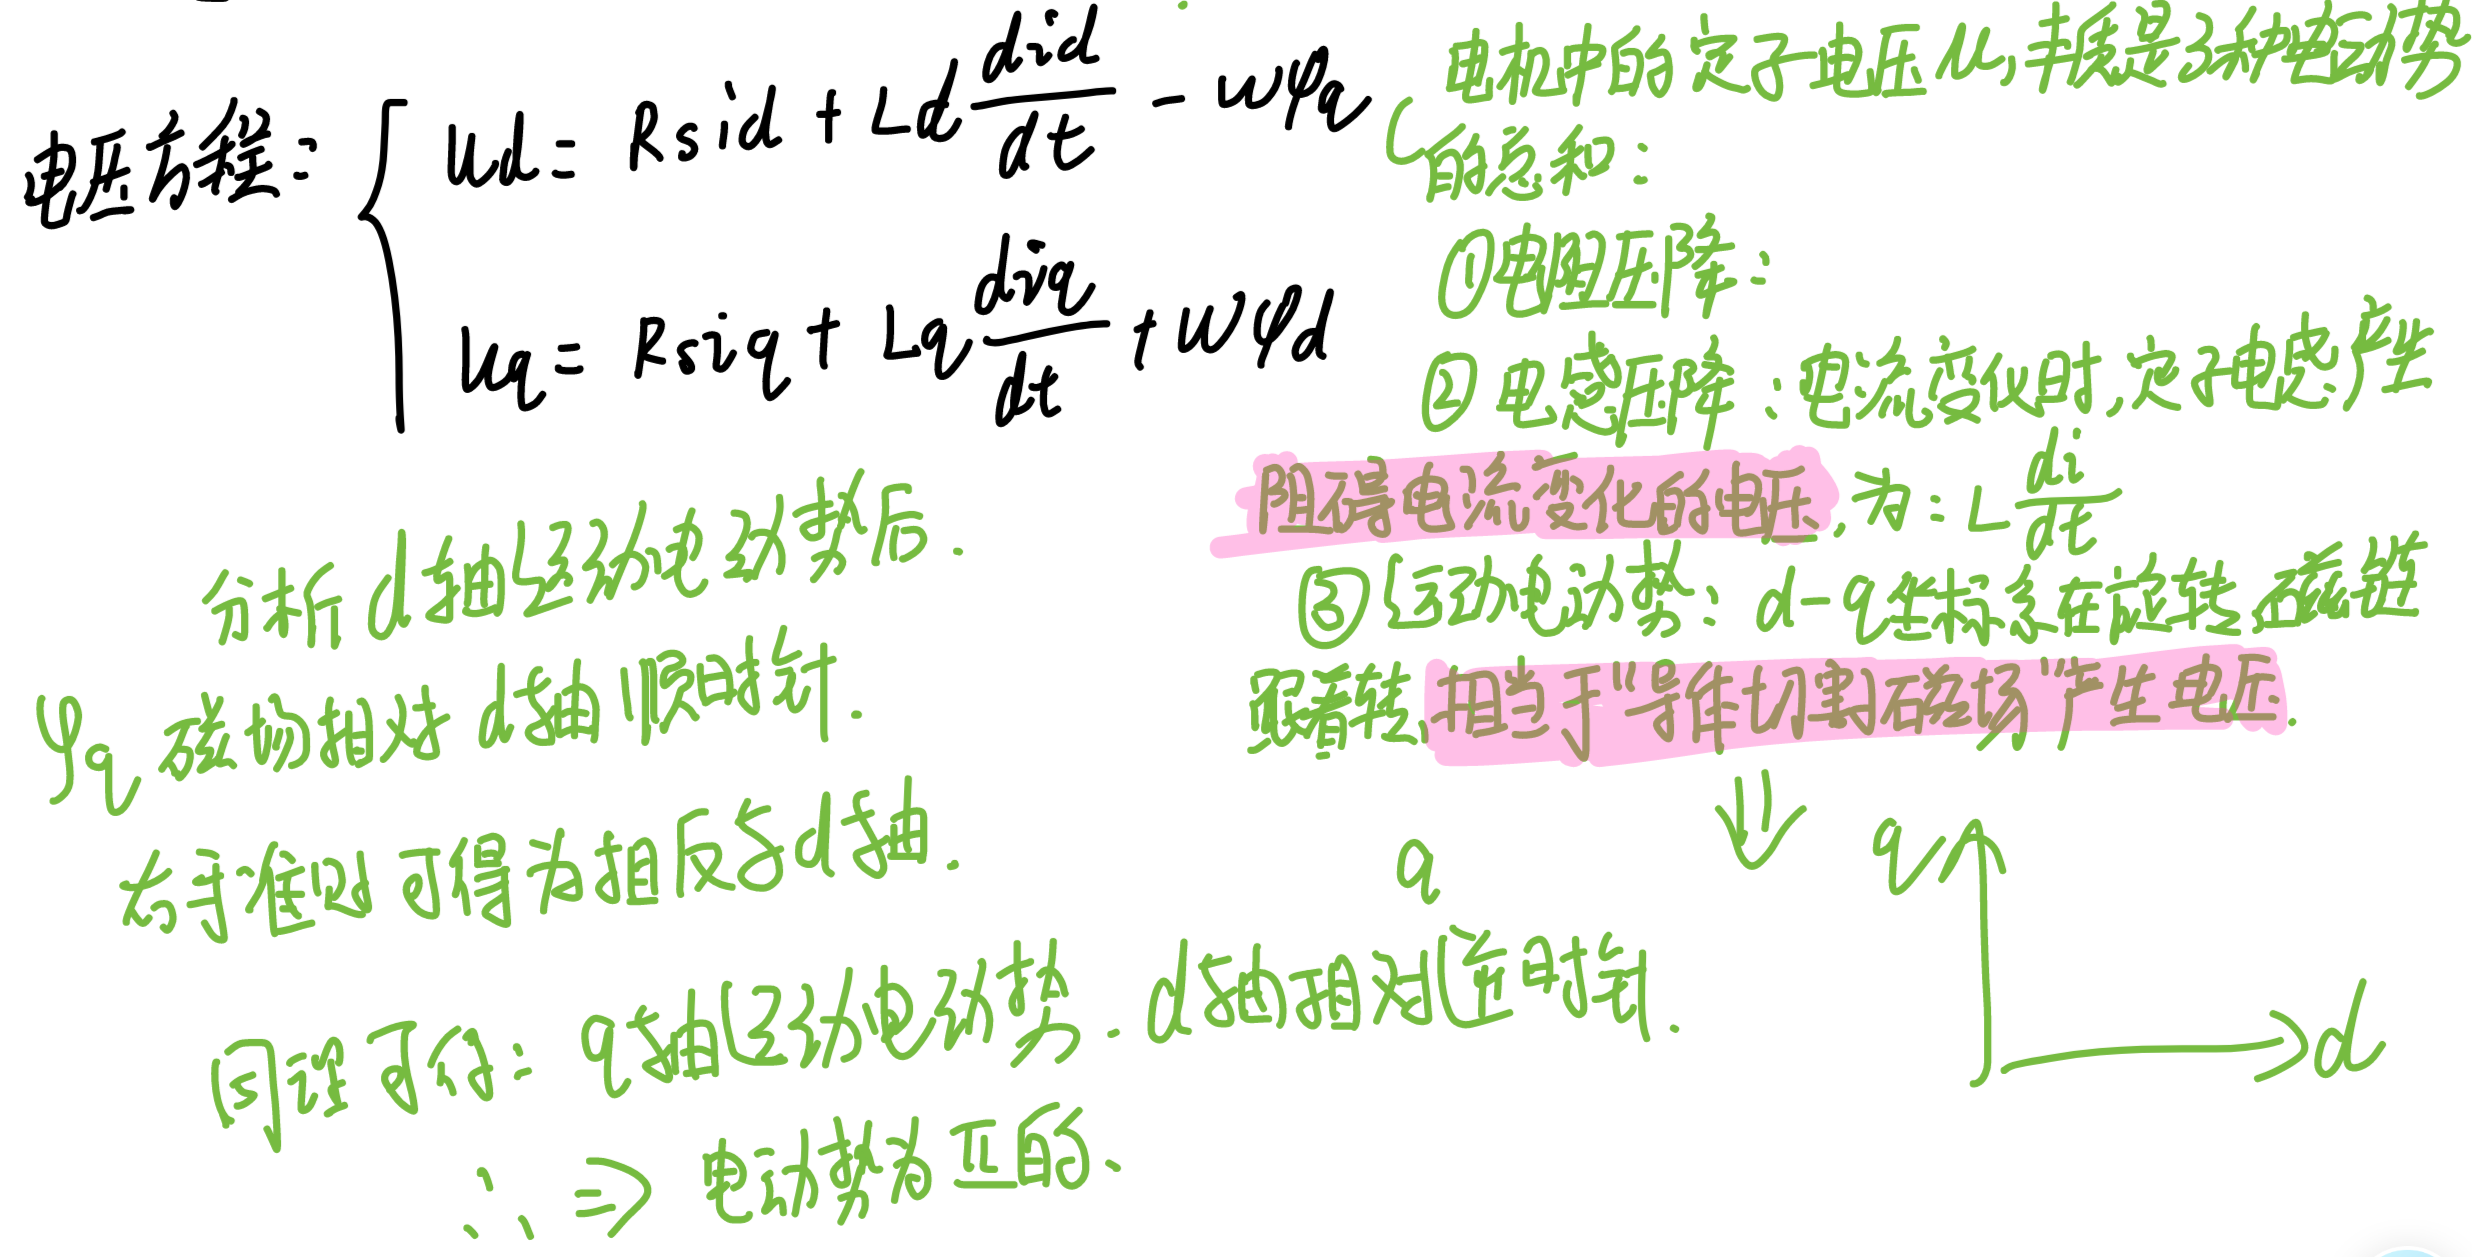 电压方程:
Ud = Rsid + Ld did/dt - wψq
Uq = Rsiq + Lq diq/dt + wψd
电机中的定子电压U,本质是3种电动势
的总和:
①电阻压降:
②电感压降:电流变化时,定子电感产生
阻碍电流变化的电压,为:L di/dt
③运动电动势:d-q坐标系在旋转,磁链
跟着转,相当于“导体切割磁场”产生电压.
q
d
q
分析d轴运动电动势后.
ψq磁场相对d轴顺时针.
右手准则可得为相反与d轴.
同理可得:q轴运动电动势.d轴相对逆时针.
∴ ⇒ 电动势为正的、